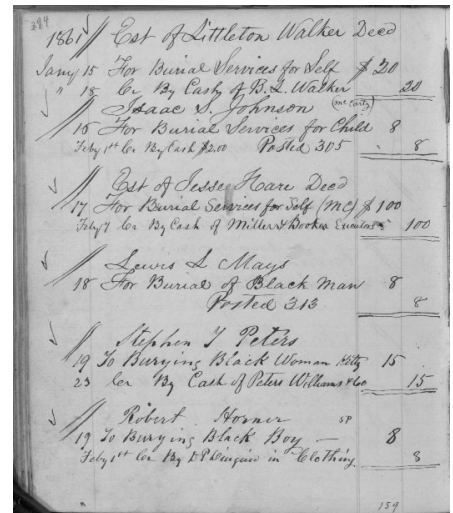 384
1861 Est of Littleton Walker Decd
Jany 15 For Burial Services for Self $ 20
" 18 Cr By Cash of B. L. Walker 20
Isaac S. Johnson (McCarty)
16 For Burial Services for Child 8
Feby 1st Cr By Cash $2.00 Posted 305 8
Est of Jesse Hare Decd
17 For Burial Services for Self (MC) $ 100
Feby 7 Cr By Cash of Miller & Booker 100
Lewis L Mays
18 For Burial of Black Man 8
Posted 313 8
Stephen T Peters
19 To Burying Black Woman Kitty 15
23 Cr By Cash of Peters Williams & Co 15
Robert Horner SP
19 To Burying Black Boy — 8
Feby 1st Cr By in Clothing 8
159